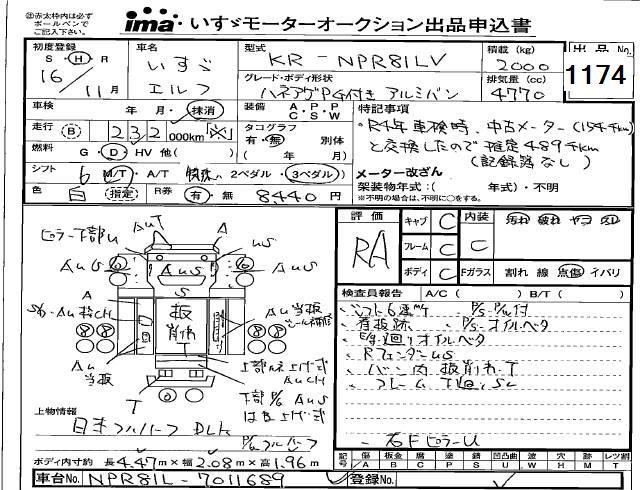 ㊟赤太枠内は必ず
ボールペンで
ご記入下さい。
ima いすゞモーターオークション出品申込書
初度登録 S・H・R
16 11月
車名
いすゞ
エルフ
型式
KR-NPR81LV
グレード・ボディ形状
ハネアゲPG付き アルミバン
積載 (kg)
2000
排気量 (cc)
4770
出品No.
1174
車検 年 月・抹消
装備 A・P・P C・S・W
走行 (B) 232 000km 「※」
タコグラフ
有・無 別体
( 年 月)
燃料 G・D・HV 他( )
シフト 6 M/T・A/T 2ペダル・3ペダル
色 白 指定 R券 有・無 8440円
特記事項
・R4年車検時、中古メーター(154千km)
と交換したので推定489千km
(記録簿なし)
メーター改ざん
架装物年式:( 年式)・不明
※不明の場合は、不明に○をする。
評価
RA
キャブ C
フレーム C
ボディ C
内装 C
汚れ 破れ ヤコ スレ
Fガラス 割れ 線 点傷 イバリ
検査員報告 A/C ( ) B/T ( )
・シフト6速 P/S・P/W付
・看板跡 ・P/S-オイルベタ
・E/g廻りオイルベタ
・Rフェンダーus
・バン内 板削れ・T
・フレーム 下廻りSC
・右FピラーU
ピラー下部U
AuT
A
us
AuS
AuS
A
S
Au当板
板
削れ
T
Au
当板
T
上部ハネ上げ式
AuCH
下部P/G AuS
はね上げ式
上物情報
日本フルハーフ DLK
P/Gフルハーフ
ボディ内寸約 長4.47m×幅2.08m×高1.96m
記号 傷A 板金B 腐C 補P 塗S 錆C 凹凸曲U 波W 穴H 跡X レツ割T
車台No. NPR81L-7011689
登録No.